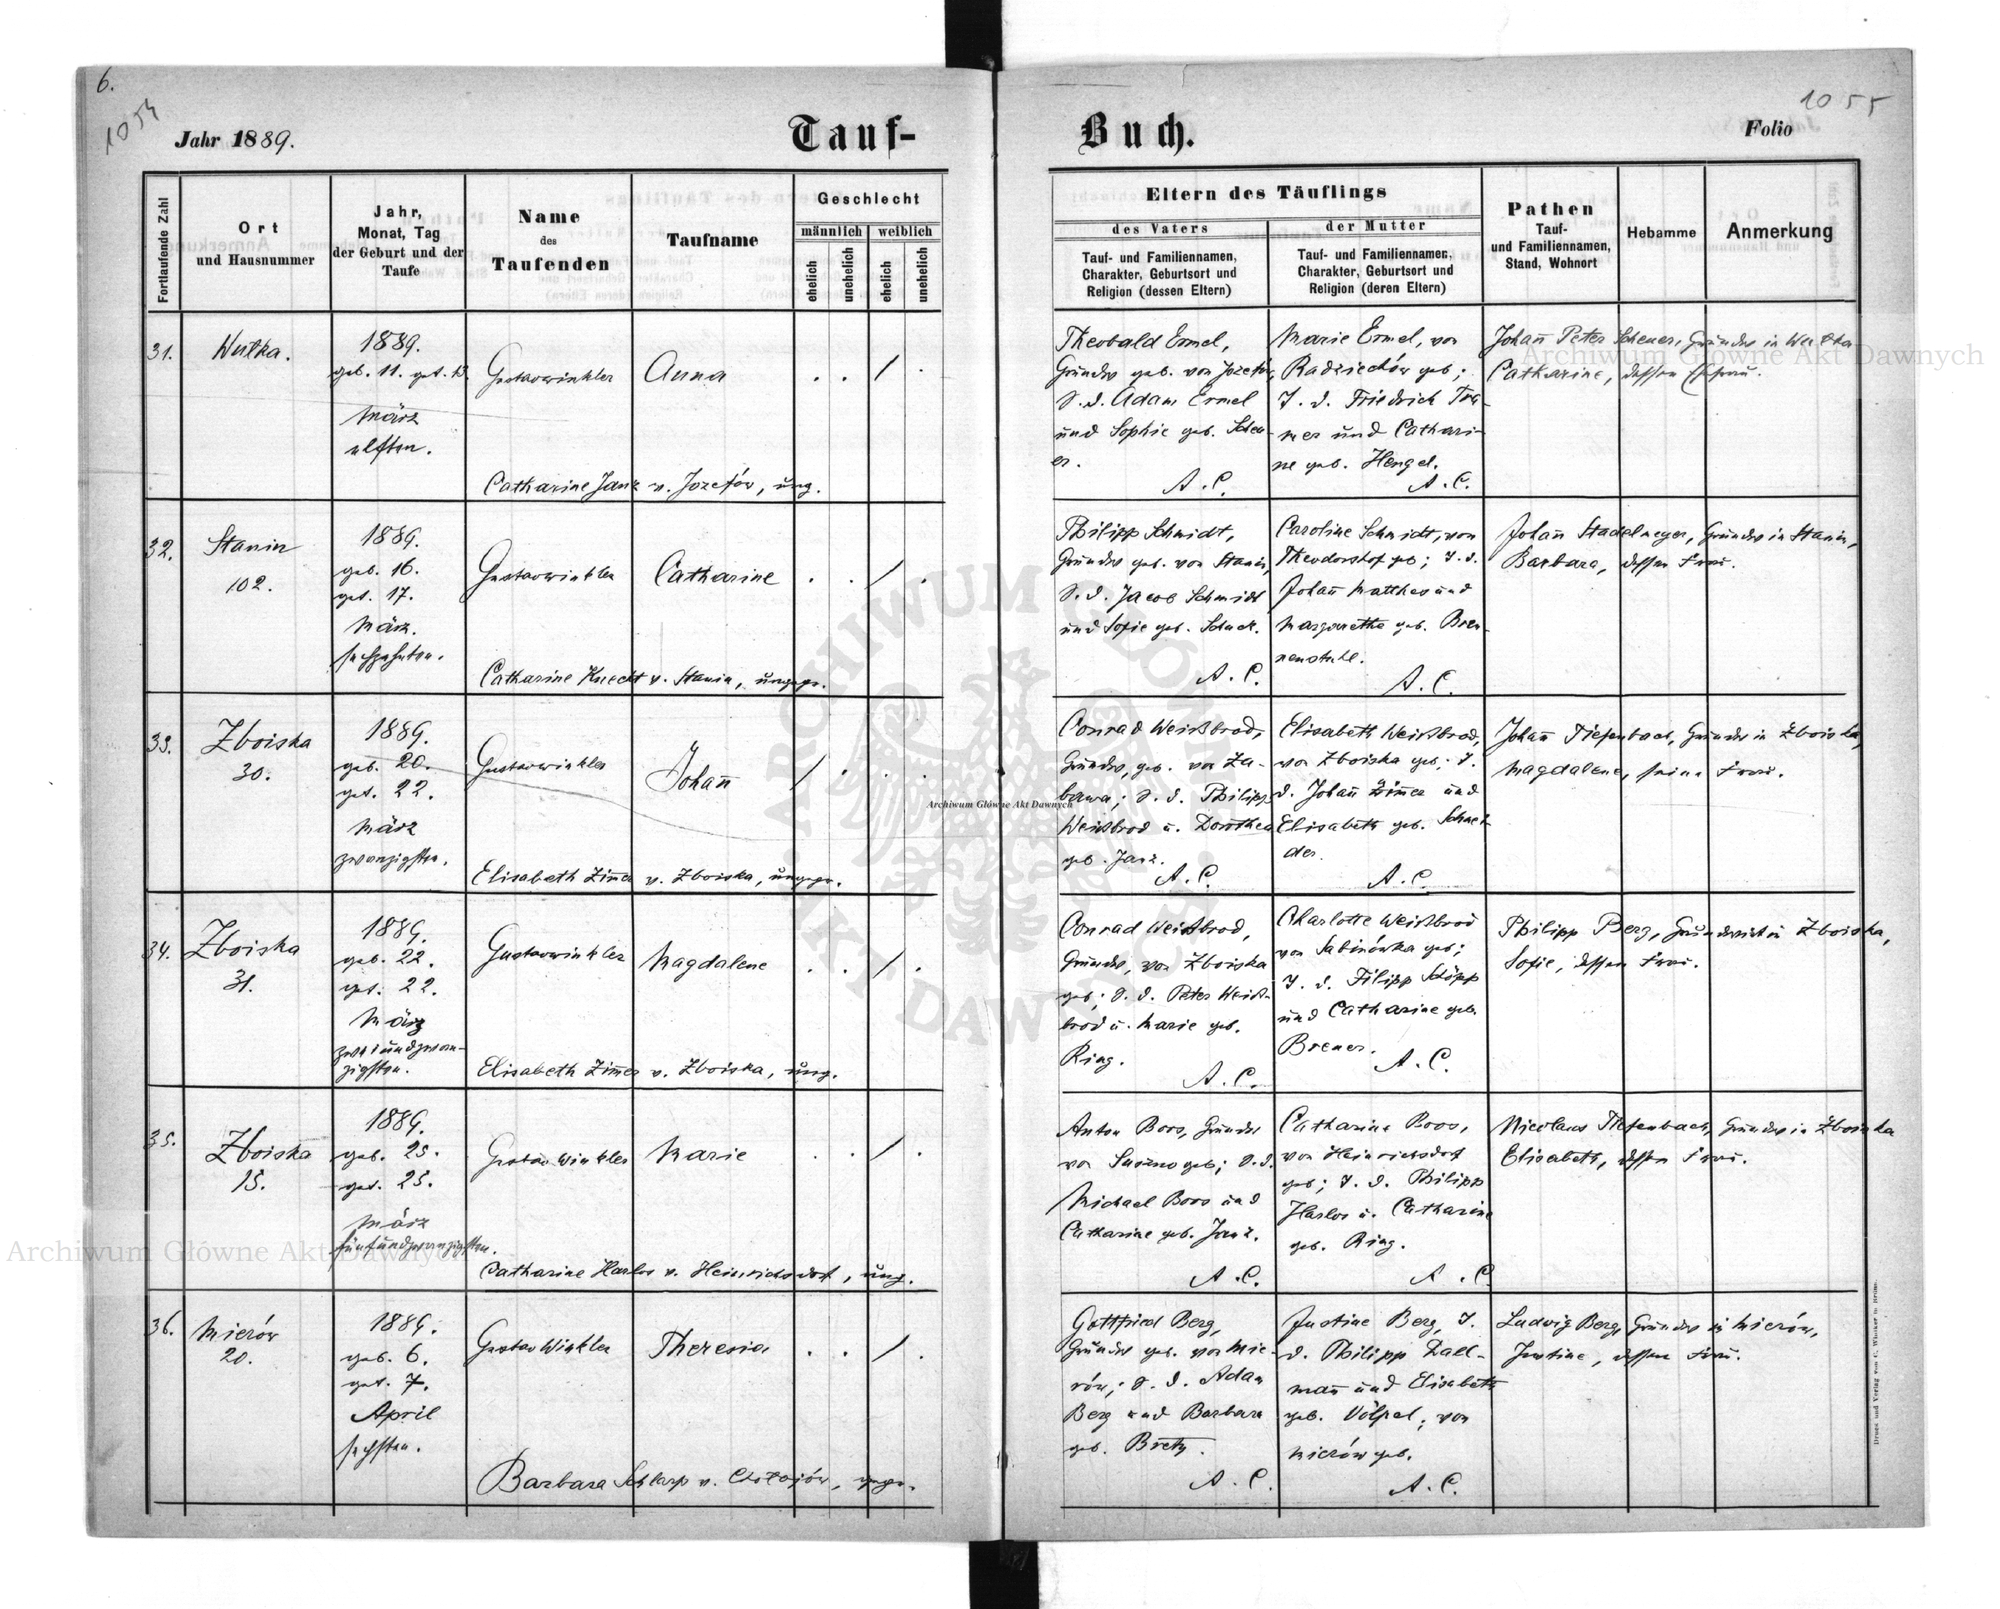 6.
1054
1055
Jahr 1889.
Tauf-
Buch.
Folio
Fortlaufende Zahl
Ort
und Hausnummer
Jahr,
Monat, Tag
der Geburt und der
Taufe
Name
des
Taufenden
Taufname
Geschlecht
männlich
weiblich
ehelich
unehelich
ehelich
unehelich
Eltern des Täuflings
des Vaters
Tauf- und Familiennamen,
Charakter, Geburtsort und
Religion (dessen Eltern)
der Mutter
Tauf- und Familiennamen,
Charakter, Geburtsort und
Religion (deren Eltern)
Pathen
Tauf-
und Familiennamen,
Stand, Wohnort
Hebamme
Anmerkung
31.
Wulka.
1889.
geb. 11. get. 13.
März
elften.
Gustav Winkler
Anna
Catharine Janz v. Jozefów, ung.
Theobald Ermel,
Grundw geb. von Jozefów,
S. d. Adam Ermel
und Sophie geb. Scheu-
er.
A. C.
Marie Ermel, von
Radziechów geb;
T. d. Friedrich
und Cathari-
ne geb. Hengel.
A. C.
Johañ Peter Scheuer, Grundw in
Catharine, dessen Ehefrau.
32.
Stanin
102.
1889.
geb. 16.
get. 17.
März.
sechzehnten.
Gustav Winkler
Catharine
Catharine Knecht v. Stanin, ungepr.
Philipp Schmidt,
Grundw geb. von Stanin,
S. d. Jacob Schmidt
und Sofie geb. Schuck.
A. C.
Caroline Schmidt, von
Theodorshof geb; T. d.
Johañ Matthes und
Margarethe geb. Bren-
nenstuhl.
A. C.
Johañ Stadelmeyer, Grundw in Stanin,
Barbara, dessen Frau.
33.
Zboiska
30.
1889.
geb. 20.
get. 22.
März
zwanzigsten.
Gustav Winkler
Johañ
Elisabeth Zim̄er v. Zboiska, ungepr.
Conrad Weißbrod,
Grundw, geb. von Za-
bawa; S. d. Philipp
Weißbrod u. Dorothea
geb. Janz.
A. C.
Elisabeth Weißbrod,
von Zboiska geb; T.
d. Johañ Zim̄er und
Elisabeth geb. Schnei-
der.
A. C.
Johañ Tiefenbach, Grundw in Zboiska,
Magdalene, seine Frau.
34.
Zboiska
31.
1889.
geb. 22.
get. 22.
März
zweiundzwan-
zigsten.
Gustav Winkler
Magdalene
Elisabeth Zim̄er v. Zboiska, ung.
Conrad Weißbrod,
Grundw, von Zboiska
geb; S. d. Peter Weiß-
brod u. Marie geb.
Ring.
A. C.
Charlotte Weißbrod
von Sabinówka geb;
T. d. Filipp Schöpp
und Catharine geb.
Brener.
A. C.
Philipp Berg, Grundwirt in Zboiska,
Sofie, dessen Frau.
35.
Zboiska
15.
1889.
geb. 25.
get. 25.
März
fünfundzwanzigsten.
Gustav Winkler
Marie
Catharine Harlos v. Heinrichsdorf, ung.
Anton Boos, Grundw
von geb; S. d.
Michael Boos und
Catharine geb. Janz.
A. C.
Catharine Boos,
von Heinrichsdorf
geb; T. d. Philipp
Harlos u. Catharine
geb. Ring.
A. C.
Nicolaus Tiefenbach, Grundw in Zboiska
Elisabeth, dessen Frau.
36.
Mierów
20.
1889.
geb. 6.
get. 7.
April
sechsten.
Gustav Winkler
Theresia
Barbara Schlarp v. Chołojów, gepr.
Gottfried Berg,
Grundw geb. von Mie-
rów; S. d. Adam
Berg und Barbara
geb. Bretz.
A. C.
Justine Berg, T.
d. Philipp Dall-
mañ und Elisabeth
geb. Völpel, von
Mierów geb.
A. C.
Ludwig Berg, Grundw in Mierów,
Justine, dessen Frau.
Archiwum Główne Akt Dawnych
Archiwum Główne Akt Dawnych
Archiwum Główne Akt Dawnych
ARCHIWUM GŁÓWNE
AKT DAWNYCH